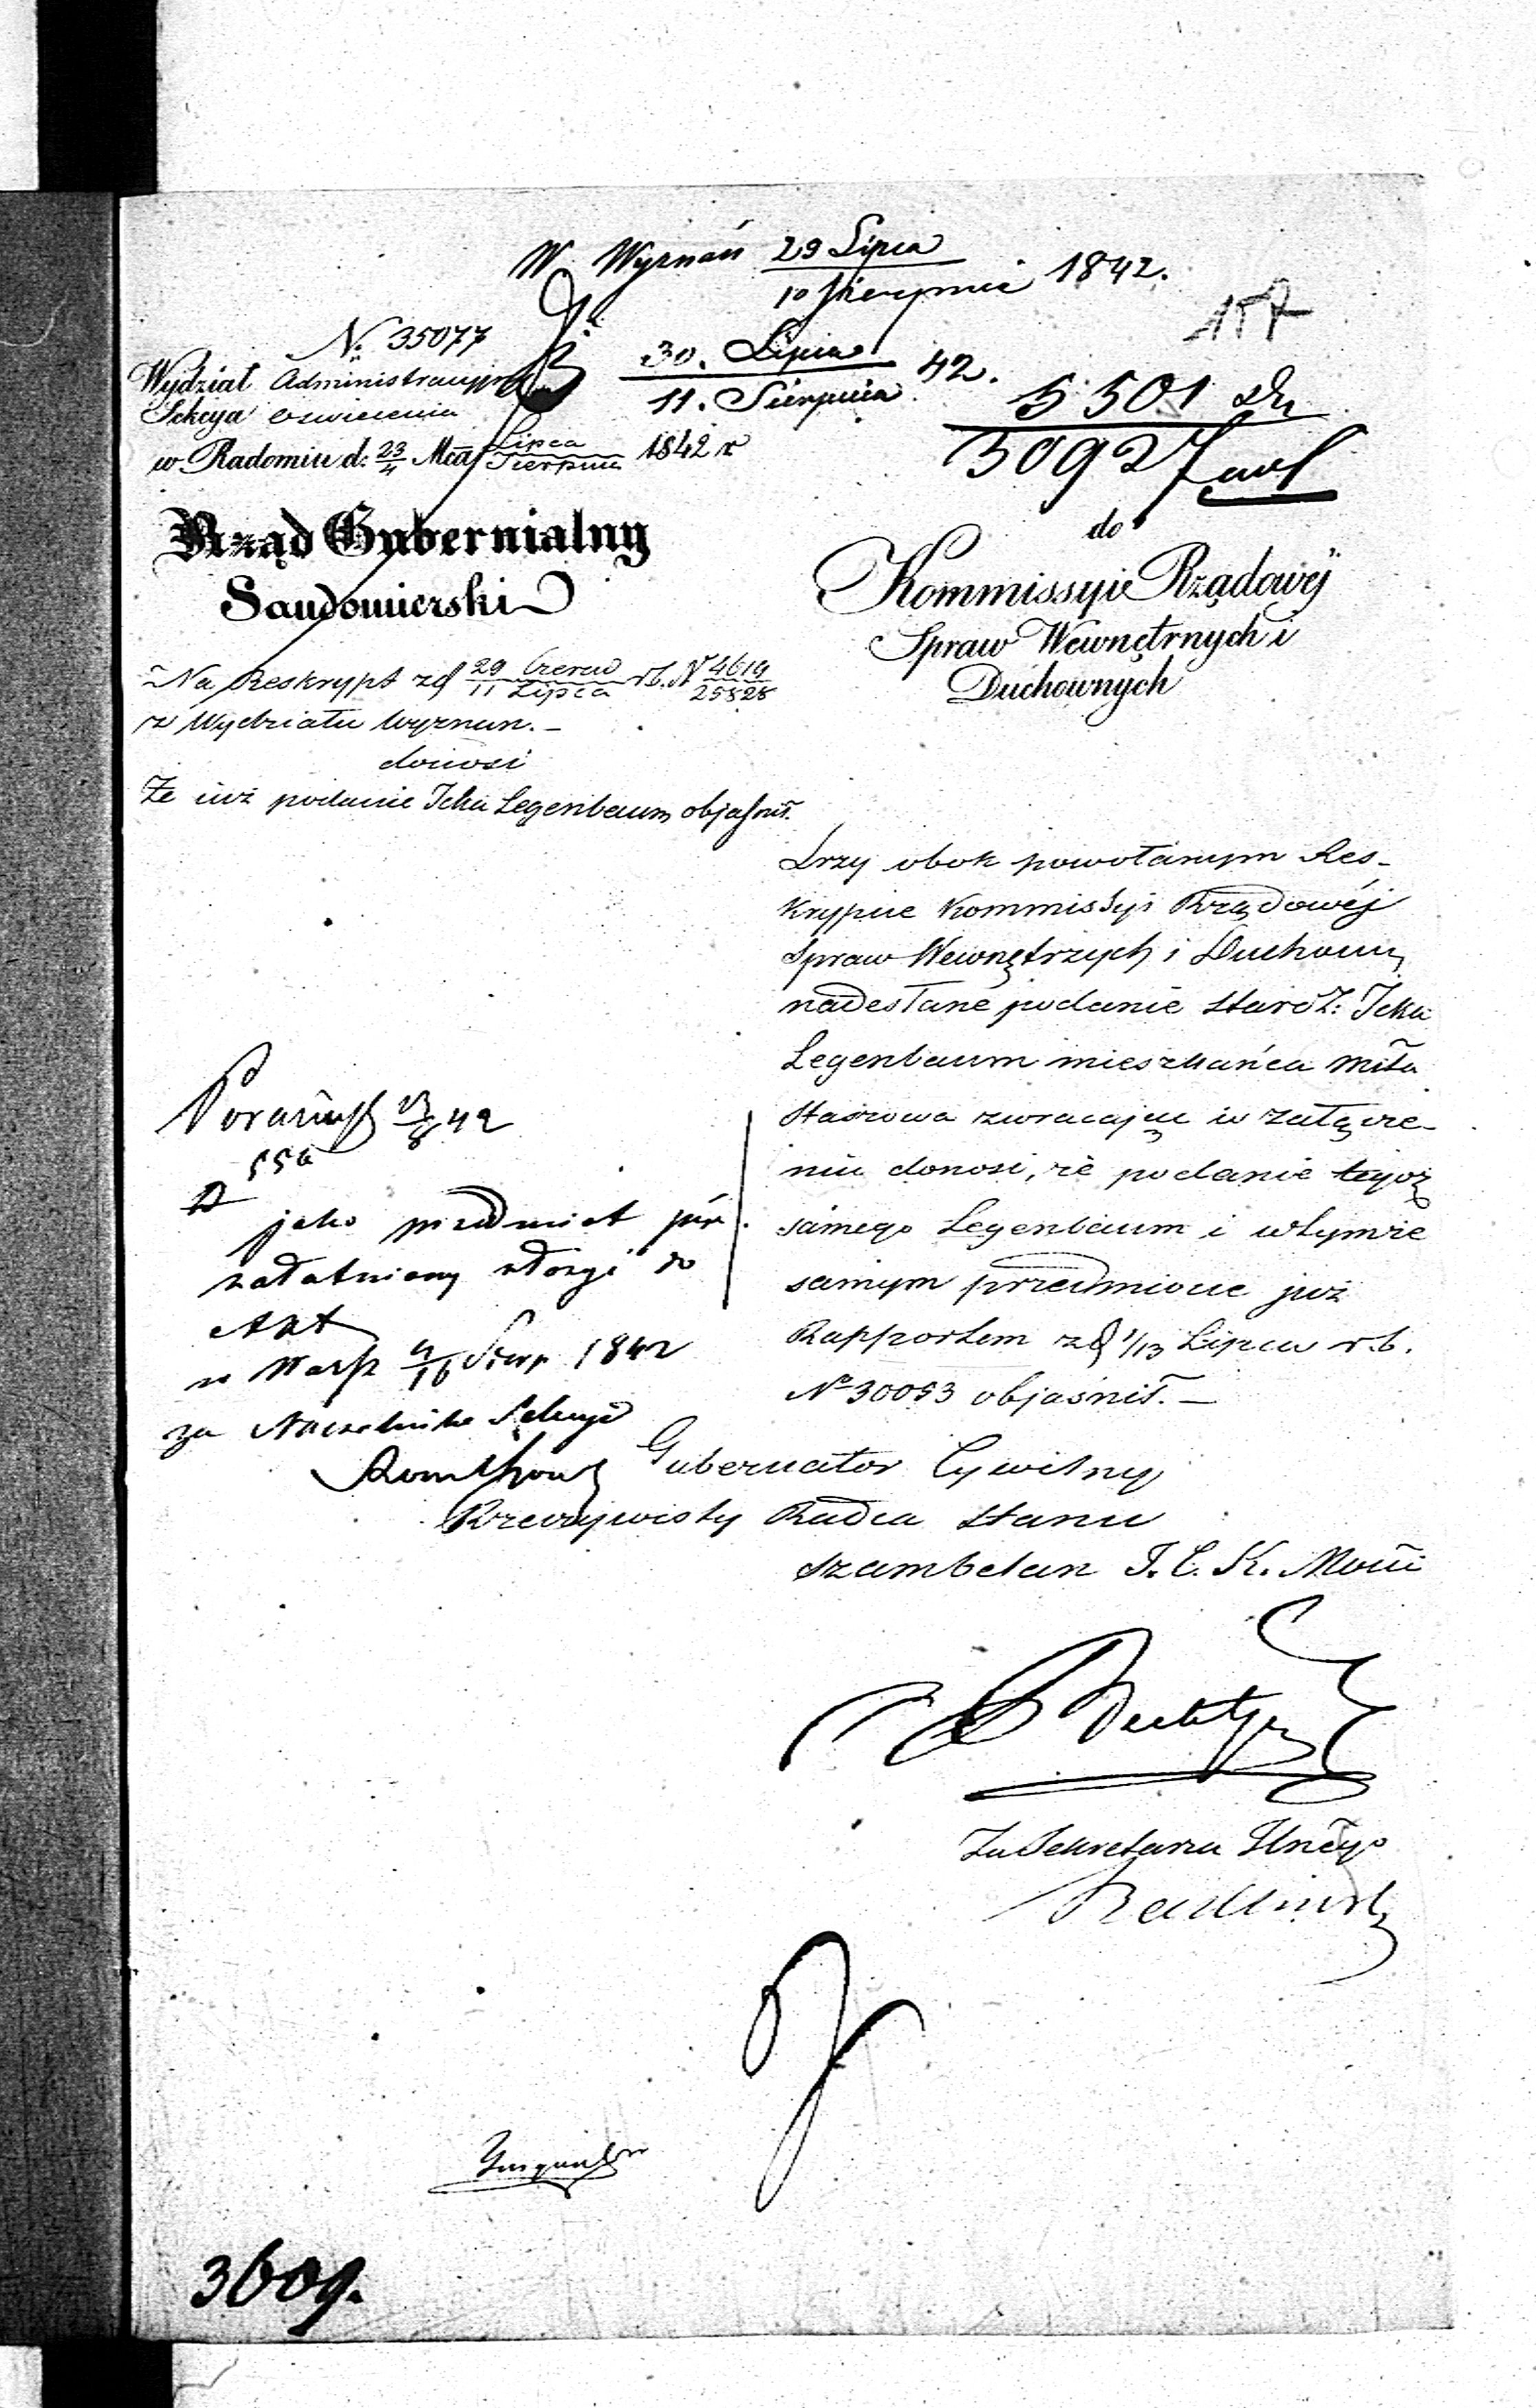 W. Wyznań 29 Lipca
10 Sierpnia 1842.
157
N: 35077
Wydział Administracyjny
Sekcya Oswiecenia
w Radomiu d: 23/4 Mca Lipca/Sierpnia 1842 r
30. Lipca
11. Sierpnia 42.
5501
30927
Rząd Gubernialny
Sandomierski
do
Kommissyi Rządowéj
Spraw Wewnętrnych i
Duchownych
Na Reskrypt zd 29 Czerw/11 Lipca r.b. N 4619/25828
z Wydziału Wyznan. –
donosi
Że iuż podanie Icka Legenbaum objaśnił.
Przy obok powołanym Res-
krypcie Kommissyi Rządowéj
Spraw Wewnętrzych i Duchown
nadesłane podanie Staroz: Icka
Legenbaum mieszkańca Mta
Staszowa zwracając w załącze-
niu donosi, że podanie tegoż
samego Legenbaum i wtymże
samym przedmiocie już
Rapportem zd 1/13 Lipca r.b.
No 30053 objaśnił. –
42
jako przedmiot już
załatniony złożyć do
Akt
w Warsz 4/16 Sierp 1842
za Naczelnika Sekcyi
Gubernator Cywilny
Rzeczywisty Radca Stanu
Szambelan J. C. K. Mości
Za Sekretarza Jlnego
3609.